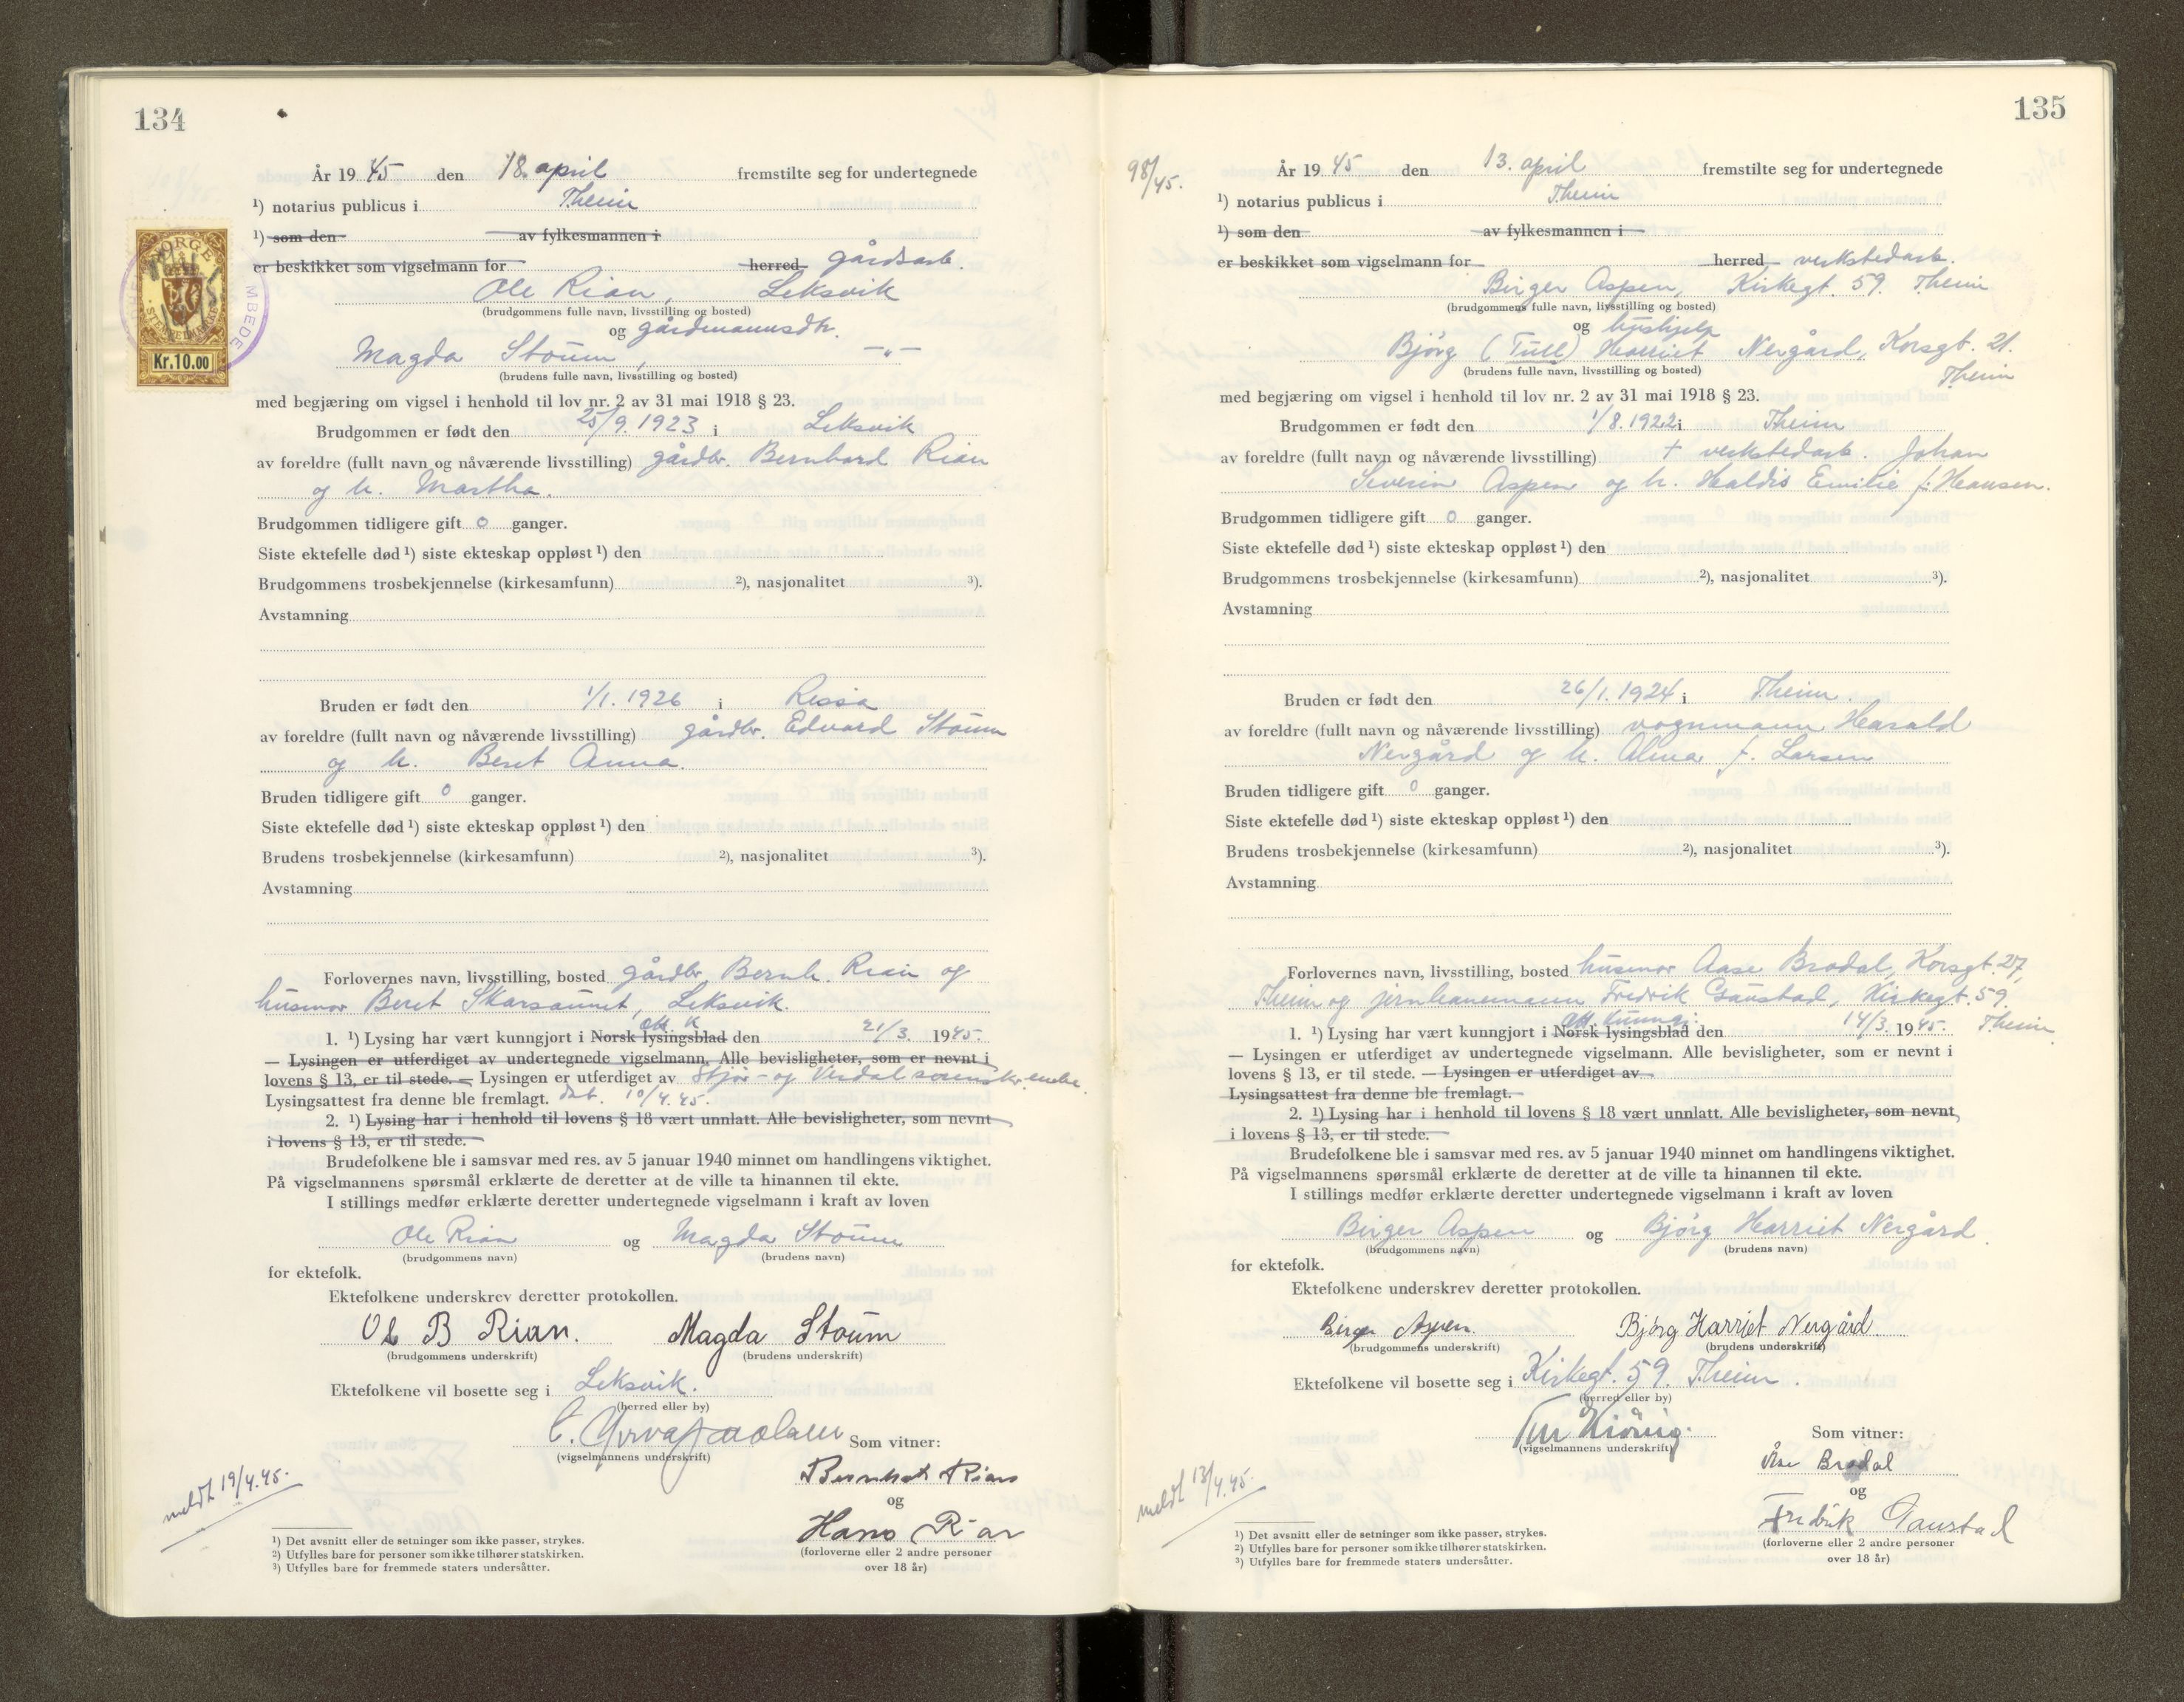 134
År 19 45 den 18. april fremstilte seg for undertegnede
¹) notarius publicus i Theim
¹) som den av fylkesmannen i
er beskikket som vigselmann for herred gårdsarb.
Ole Rian, Leksvik
(brudgommens fulle navn, livsstilling og bosted)
og gårdmannsdtr.
Magda Støum, —"—
(brudens fulle navn, livsstilling og bosted)
NORGE
STEMPELMERKE
Kr.10.00
med begjæring om vigsel i henhold til lov nr. 2 av 31 mai 1918 § 23.
Brudgommen er født den 25/9. 1923 i Leksvik
av foreldre (fullt navn og nåværende livsstilling) gårdbr. Bernhard Rian
og h. Martha.
Brudgommen tidligere gift 0 ganger.
Siste ektefelle død ¹) siste ekteskap oppløst ¹) den
Brudgommens trosbekjennelse (kirkesamfunn) ²), nasjonalitet ³).
Avstamning
Bruden er født den 1/1. 1926 i Rissa
av foreldre (fullt navn og nåværende livsstilling) gårdbr. Edvard Støum
og h. Beret Anna.
Bruden tidligere gift 0 ganger.
Siste ektefelle død ¹) siste ekteskap oppløst ¹) den
Brudens trosbekjennelse (kirkesamfunn) ²), nasjonalitet ³).
Avstamning
Forlovernes navn, livsstilling, bosted gårdbr. Bernh. Rian og
husmor Beret Skarsaunet, Leksvik.
1. ¹) Lysing har vært kunngjort i Norsk lysingsblad den 21/3. 1945.
— Lysingen er utferdiget av undertegnede vigselmann. Alle bevisligheter, som er nevnt i
lovens § 13, er til stede. — Lysingen er utferdiget av Stjør- og Verdal sorenskr.embe
Lysingsattest fra denne ble fremlagt. dat. 10/4.45.
2. ¹) Lysing har i henhold til lovens § 18 vært unnlatt. Alle bevisligheter, som nevnt
i lovens § 13, er til stede.
Brudefolkene ble i samsvar med res. av 5 januar 1940 minnet om handlingens viktighet.
På vigselmannens spørsmål erklærte de deretter at de ville ta hinannen til ekte.
I stillings medfør erklærte deretter undertegnede vigselmann i kraft av loven
Ole Rian og Magda Støum
(brudgommens navn) (brudens navn)
for ektefolk.
Ektefolkene underskrev deretter protokollen.
Ole B Rian. Magda Støum
(brudgommens underskrift) (brudens underskrift)
Ektefolkene vil bosette seg i Leksvik.
(herred eller by)
Som vitner:
(vigselmannens underskrift)
Bernhat Rian
og
meldt 19/4.45.
Hans Rian
(forloverne eller 2 andre personer
over 18 år)
¹) Det avsnitt eller de setninger som ikke passer, strykes.
²) Utfylles bare for personer som ikke tilhører statskirken.
³) Utfylles bare for fremmede staters undersåtter.
135
98/45.
År 19 45 den 13. april fremstilte seg for undertegnede
¹) notarius publicus i Theim
¹) som den av fylkesmannen i
er beskikket som vigselmann for herred verkstedarb.
Birger Aspen, Kirkegt. 59. Theim
(brudgommens fulle navn, livsstilling og bosted)
og hushjelp
Bjørg (Tull) Harriet Nergård, Korsgt. 21.
(brudens fulle navn, livsstilling og bosted) Theim
med begjæring om vigsel i henhold til lov nr. 2 av 31 mai 1918 § 23.
Brudgommen er født den 1/8. 1922 i Theim
av foreldre (fullt navn og nåværende livsstilling) + verkstedarb. Johan
Severin Aspen og h. Haldis Emilie f. Hansen.
Brudgommen tidligere gift 0 ganger.
Siste ektefelle død ¹) siste ekteskap oppløst ¹) den
Brudgommens trosbekjennelse (kirkesamfunn) ²), nasjonalitet ³).
Avstamning
Bruden er født den 26/1. 1924 i Theim.
av foreldre (fullt navn og nåværende livsstilling) vognmann Harald
Nergård og h. Alma f. Larsen
Bruden tidligere gift 0 ganger.
Siste ektefelle død ¹) siste ekteskap oppløst ¹) den
Brudens trosbekjennelse (kirkesamfunn) ²), nasjonalitet ³).
Avstamning
Forlovernes navn, livsstilling, bosted husmor Aase Brodal, Korsgt. 27,
Theim og jernbanemann Fredrik Gaustad, Kirkegt. 59,
Theim
1. ¹) Lysing har vært kunngjort i Norsk lysingsblad den 14/3. 1945.
— Lysingen er utferdiget av undertegnede vigselmann. Alle bevisligheter, som er nevnt i
lovens § 13, er til stede. — Lysingen er utferdiget av
Lysingsattest fra denne ble fremlagt.
2. ¹) Lysing har i henhold til lovens § 18 vært unnlatt. Alle bevisligheter, som nevnt
i lovens § 13, er til stede.
Brudefolkene ble i samsvar med res. av 5 januar 1940 minnet om handlingens viktighet.
På vigselmannens spørsmål erklærte de deretter at de ville ta hinannen til ekte.
I stillings medfør erklærte deretter undertegnede vigselmann i kraft av loven
Birger Aspen og Bjørg Harriet Nergård.
(brudgommens navn) (brudens navn)
for ektefolk.
Ektefolkene underskrev deretter protokollen.
Birger Aspen. Bjørg Harriet Nergård
(brudgommens underskrift) (brudens underskrift)
Ektefolkene vil bosette seg i Kirkegt. 59. Theim.
(herred eller by)
Som vitner:
(vigselmannens underskrift)
Åse Brodal
og
meldt 13/4.45.
Fredrik Gaustad
(forloverne eller 2 andre personer
over 18 år)
¹) Det avsnitt eller de setninger som ikke passer, strykes.
²) Utfylles bare for personer som ikke tilhører statskirken.
³) Utfylles bare for fremmede staters undersåtter.